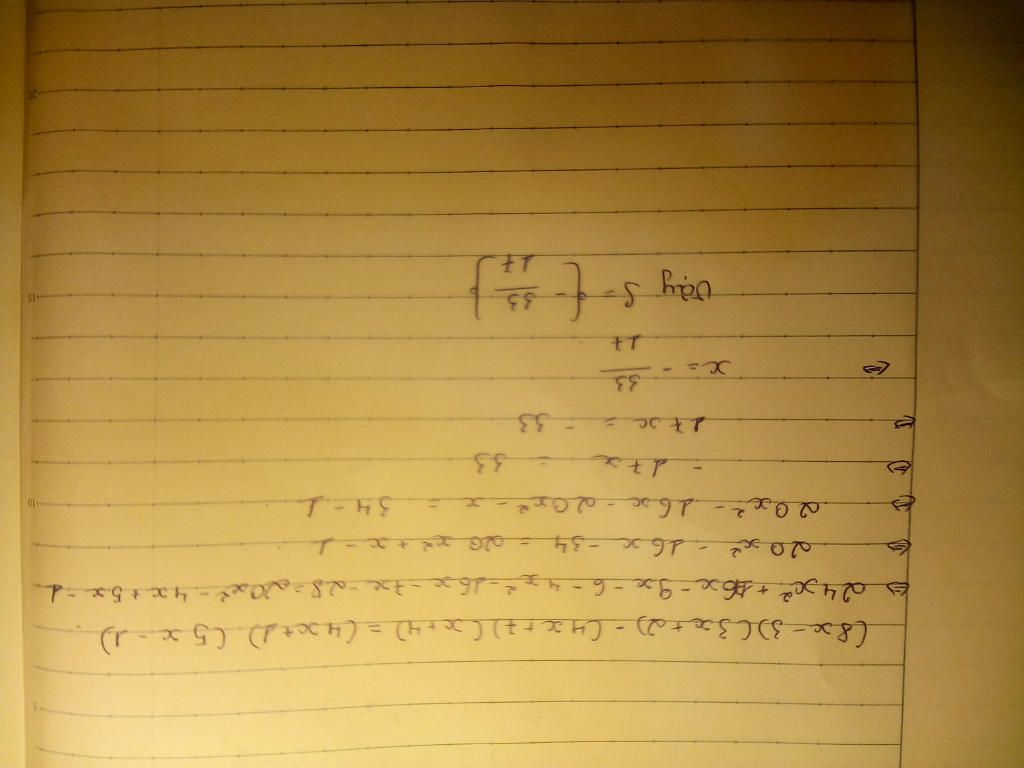 (8x - 3)(3x + 2) - (4x + 7)(x + 4) = (4x + 1)(5x - 1)
⇔ 24x² + 16x - 9x - 6 - 4x² - 16x - 7x - 28 = 20x² - 4x + 5x - 1
⇔ 20x² - 16x - 34 = 20x² + x - 1
⇔ 20x² - 16x - 20x² - x = 34 - 1
⇔ - 17x = 33
⇔ 17x = - 33
⇔ x = - 33/17
Vậy S = {- 33/17}